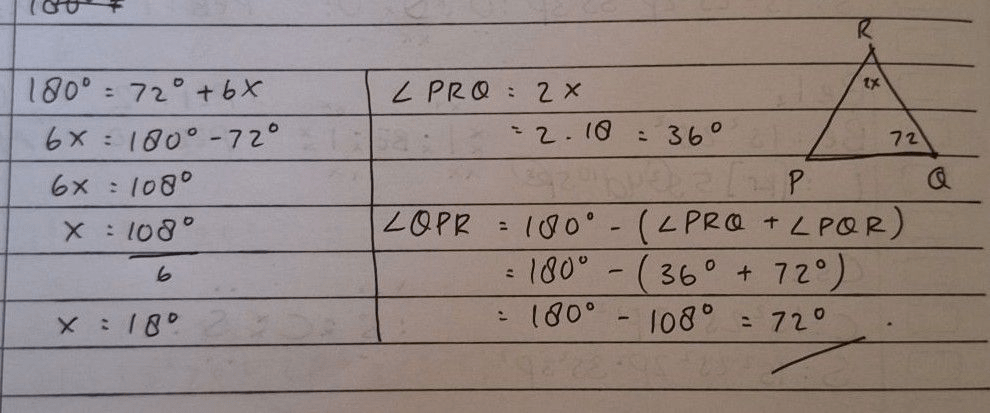 180° = 72° + 6x
6x = 180° - 72°
6x = 108°
x = 108°
6
x = 18°
∠ PRQ = 2x
= 2 . 18 = 36°
∠QPR = 180° - (∠PRQ + ∠PQR)
= 180° - (36° + 72°)
= 180° - 108° = 72° .
R
2x
72
P
Q